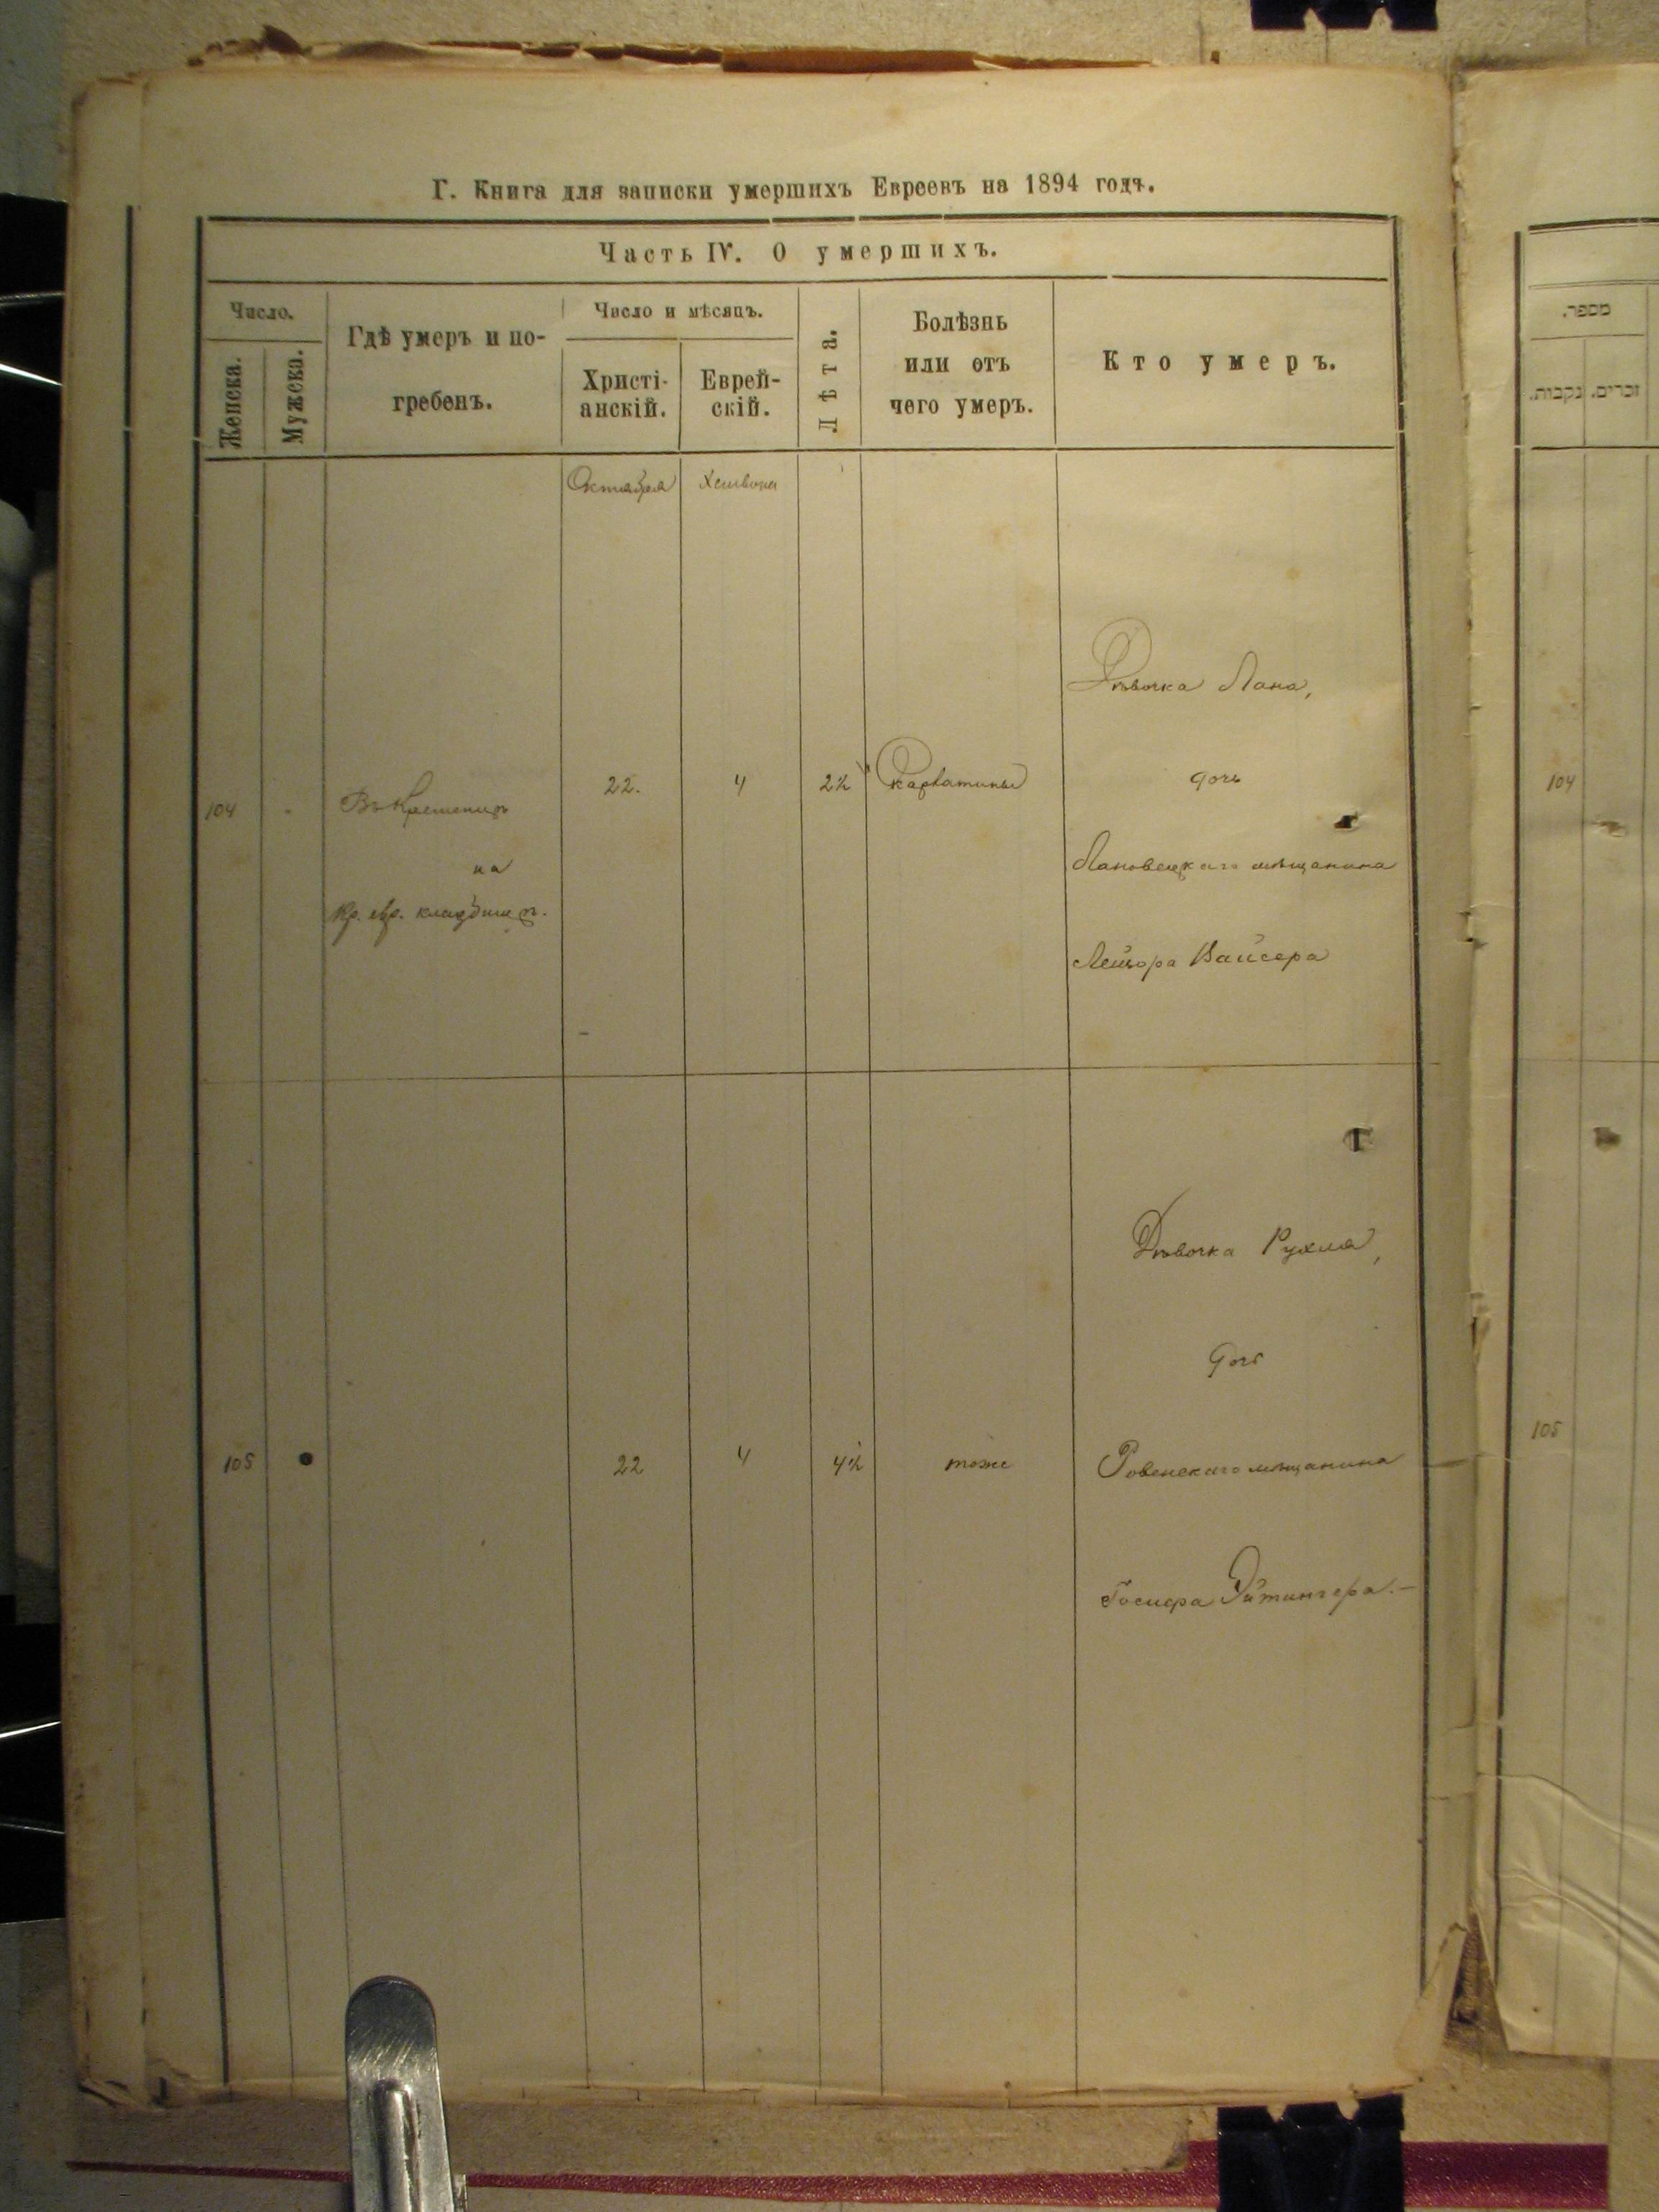 Г. Книга для записки умершихъ Евреевъ на 1894 годъ.
Часть IV. О умершихъ.
Число.
Женска.
Мужска.
Гдѣ умеръ и по-
гребенъ.
Число и мѣсяцъ.
Христі-
анскій.
Еврей-
скій.
Лѣта.
Болѣзнь
или отъ
чего умеръ.
Кто умеръ.
Октября
Хешвона
104
Въ Кременцѣ
на
Кр. евр. кладбищѣ.
22.
4
2½
Скарлатины
Дѣвочка Лана,
дочь
Лановецкаго мѣщанина
Лейзора Вайсера
105
22
4
4½
тоже
Дѣвочка Рухля,
дочь
Ровенскаго мѣщанина
Іосифа Эйтингера.–
מספר.
נקבות.
זכרים.
104
105